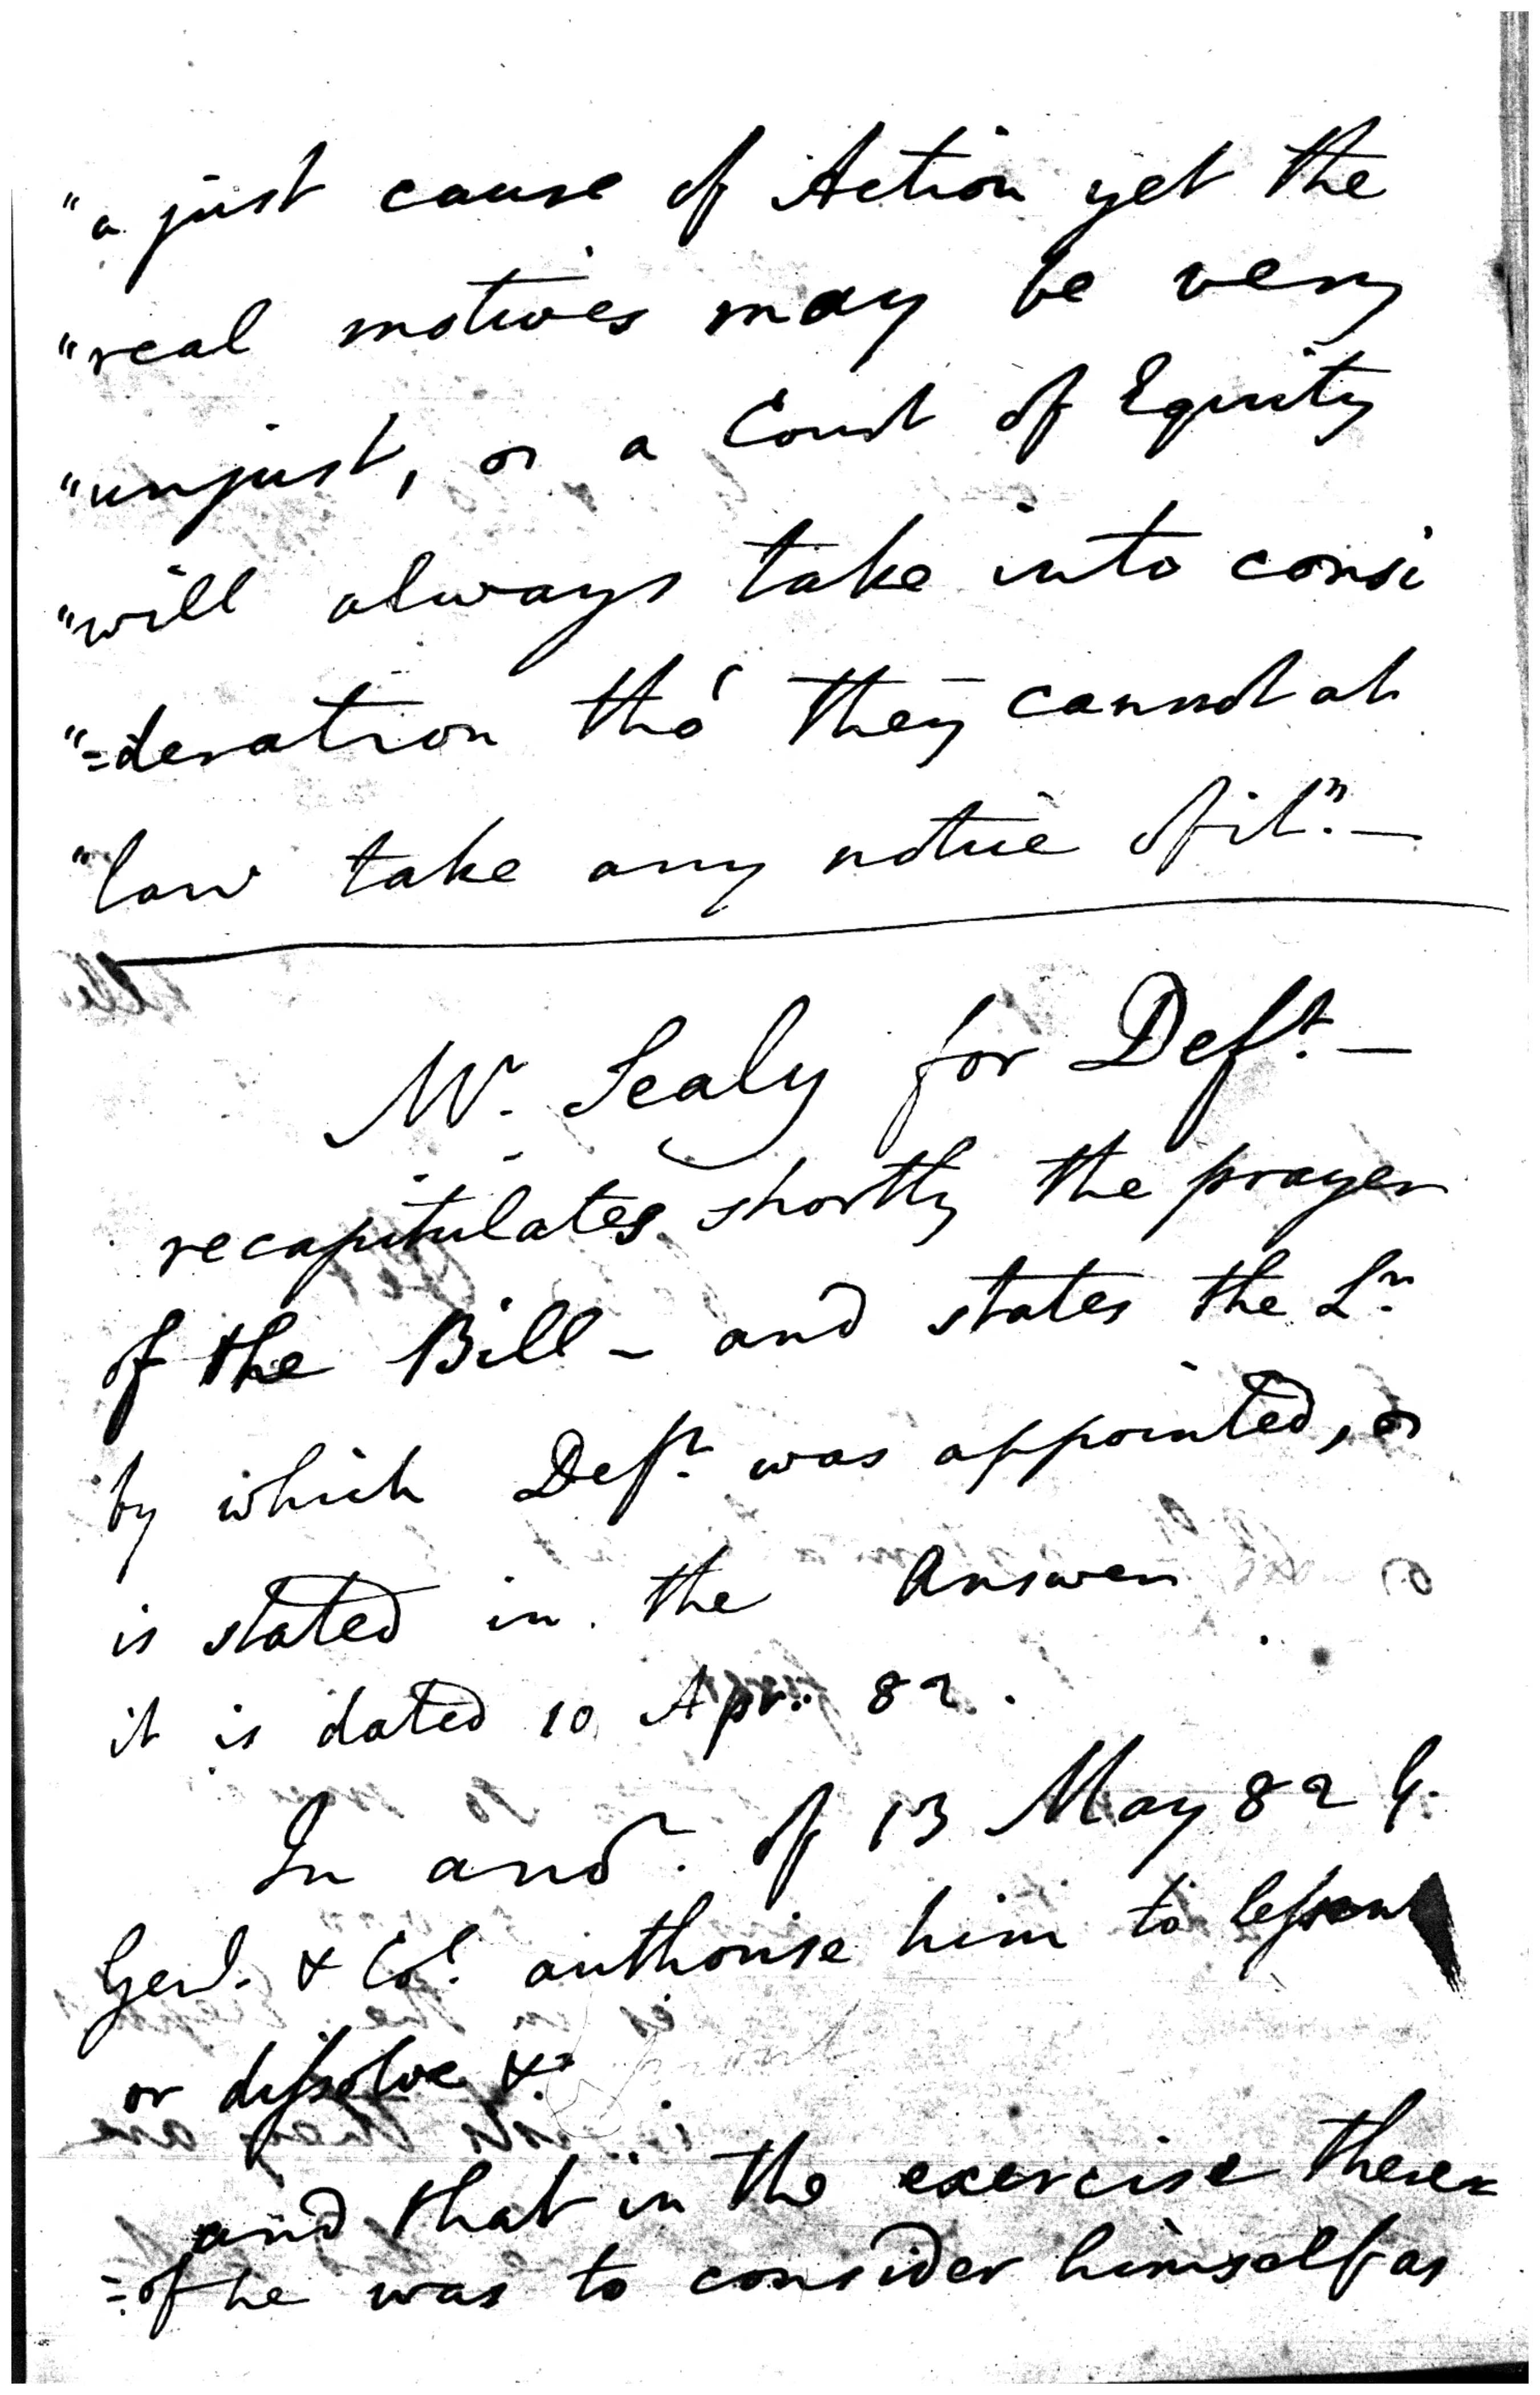 "a just cause of Action yet the
"real motives may be very
"unjust, or a Court of Equity
"will always take into consi
"=deration tho' they cannot at
"law take any notice of it". —
Mr. Sealy for Deft. —
recapitulates shortly the prayer
of the Bill - and states the Lr.
by which Deft. was appointed, as
is stated in the Answer
it is dated 10 Apr. 82.
In anor. of 13 May 82 G.
Genl. & Col. authorise him to lessen
or dissolve &c
and that in the exercise there=
=of he was to consider himself as